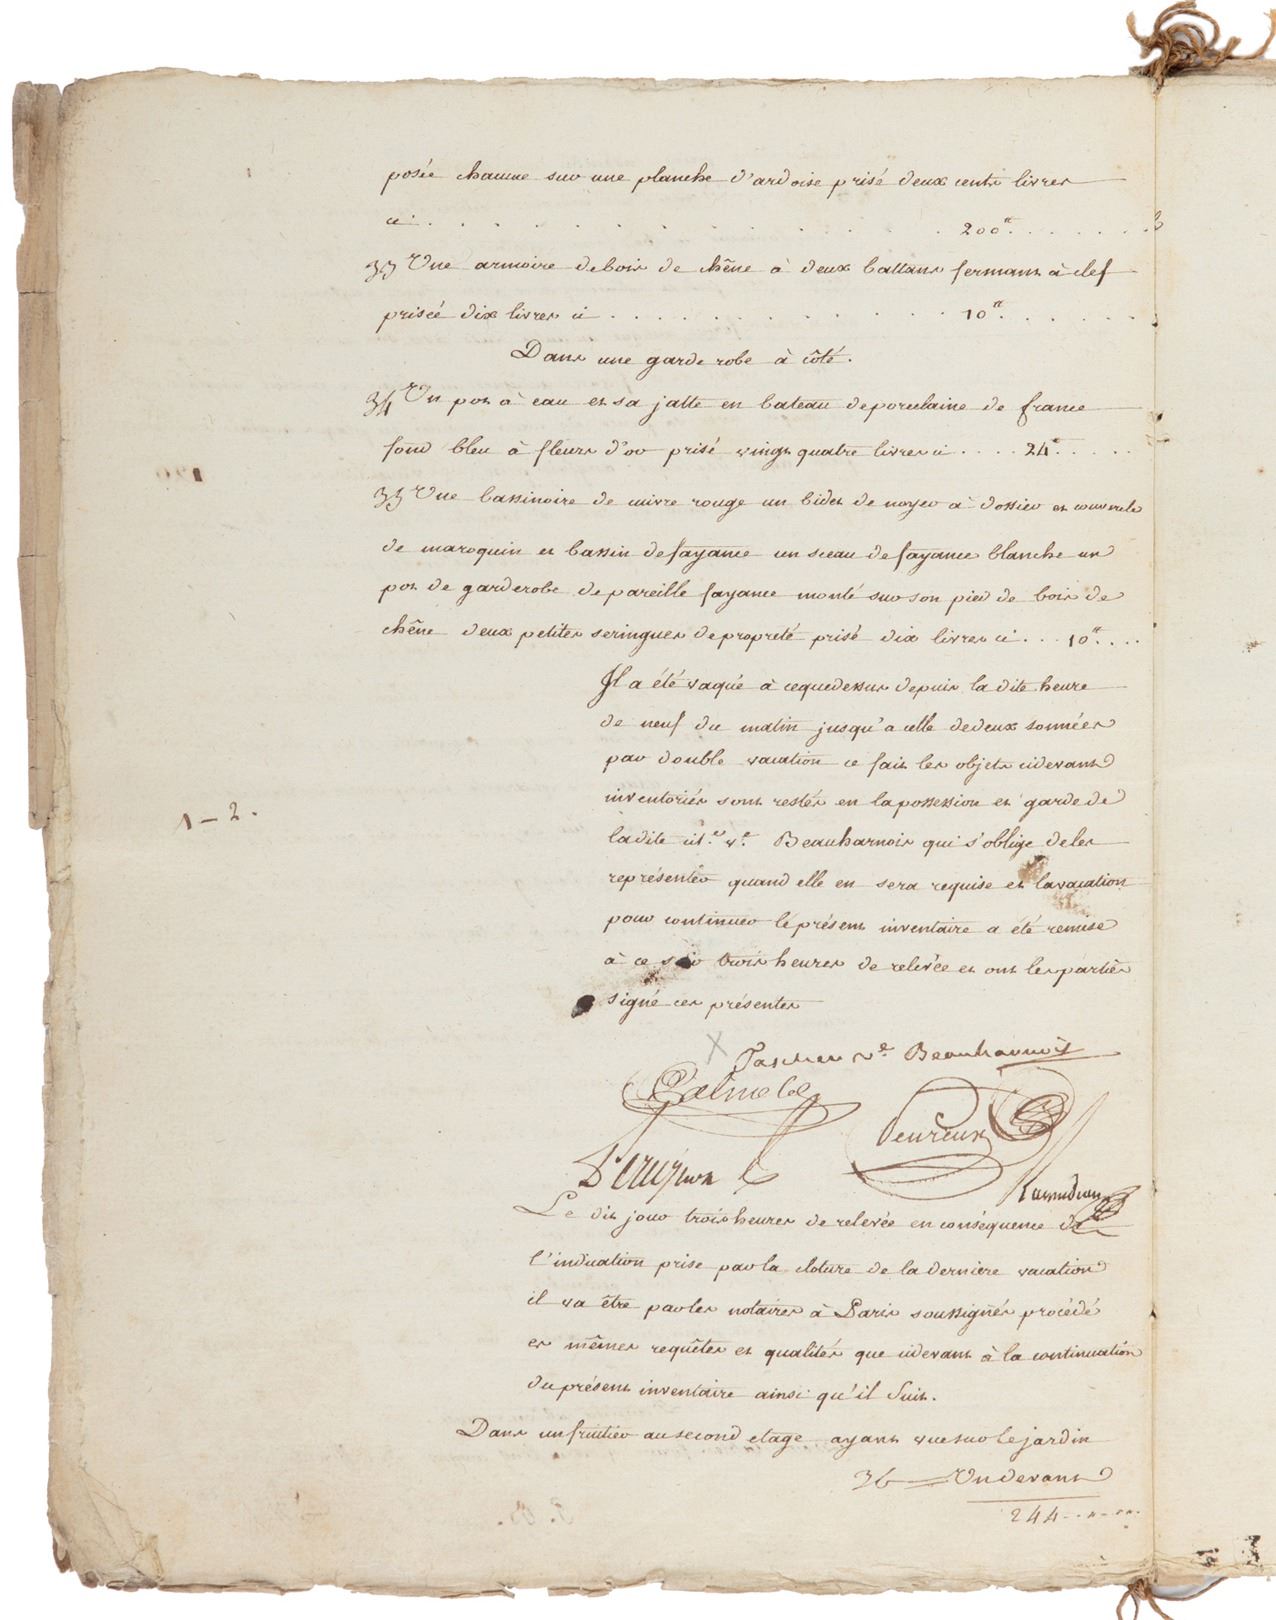 posée chacune sur une planche d'ardoise prisé deux cents livres
ci . . . . . . . . . . . . 200tt . . . . . .
33 Une armoire de bois de chêne à deux battans fermant à clef
prisée dix livres ci . . . . . . . . . . 10tt . . . . .
Dans une garde robe à côté.
34 Un pot à eau et sa jatte en bateau de porcelaine de france
fond bleu à fleurs d'or prisé vingt quatre livres ci . . . . 24tt . . . . .
35 Une bassinoire de cuivre rouge un bidet de noyer à dossier et couvercle
de maroquin et bassin de fayance un sceau de fayance blanche un
pot de garderobe de pareille fayance monté sur son pied de bois de
chêne deux petites seringues de propreté prisé dix livres ci . . . 10tt . . . .
Il a été vaqué à ce que dessus depuis la dite heure
de neuf du matin jusqu'a celle de deux sonnées
par double vacation ce fait les objets cidevant
inventoriés sont restés en la possession et garde de
1 - 2.
ladite cit.e v.e Beauharnois qui s'oblige de les
représenter quand elle en sera requise et la vacation
pour continuer le présent inventaire a été remise
à ce soir trois heures de relevée et ont les parties
signé ces présentes
Tascher ve. Beauharnois
Calmelet
Peureux
Le dit jour trois heures de relevée en conséquence de
l'indication prise par la cloture de la derniere vacation
il va être par les notaires à Paris soussignés procédé
es mêmes requêtes et qualités que cidevant à la continuation
du présent inventaire ainsi qu'il suit.
Dans un fruitier au second etage ayant vue sur le jardin
36 Un devant
244 . . " - " .